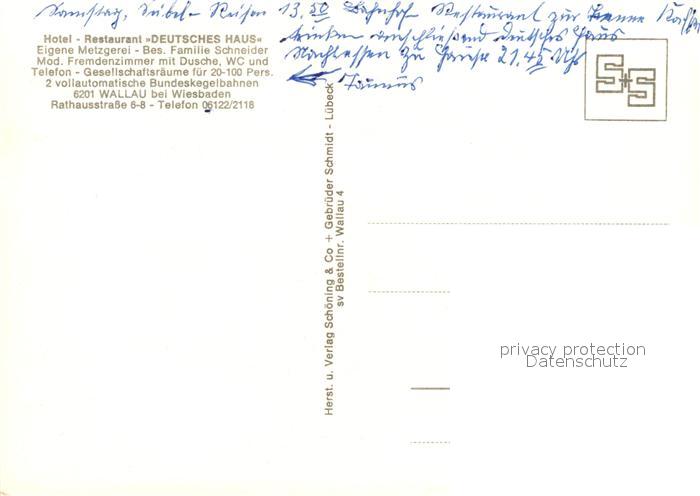 Samstag, Sübel-Reisen 13.50 Bahnhof Restaurant zur Tenne Kaffee
trinken anschließend Deutsches Haus
Nachtessen zu Hause 21.45 Uhr
Taunus
Hotel - Restaurant »DEUTSCHES HAUS«
Eigene Metzgerei - Bes. Familie Schneider
Mod. Fremdenzimmer mit Dusche, WC und
Telefon - Gesellschaftsräume für 20-100 Pers.
2 vollautomatische Bundeskegelbahnen
6201 WALLAU bei Wiesbaden
Rathausstraße 6-8 - Telefon 06122/2118
Herst. u. Verlag Schöning & Co + Gebrüder Schmidt - Lübeck
sv Bestellnr. Wallau 4
S+S
privacy protection
Datenschutz